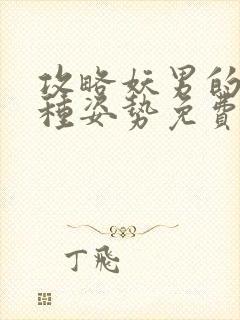 攻略妖男的
種姿勢免費
丁飛